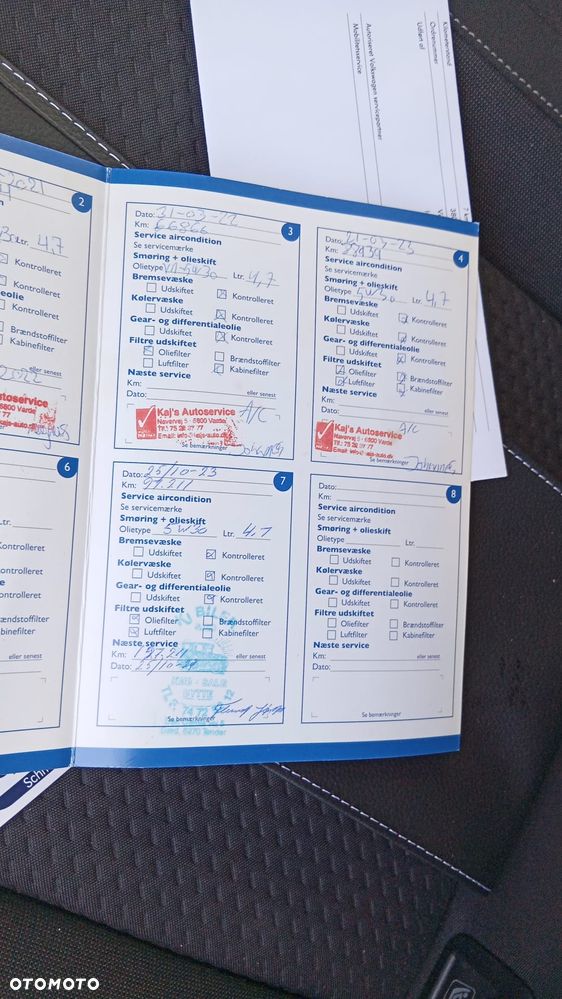 Kilometerstand
Ordrenummer
Udført af
Autoriseret Volkswagen servicepartner
Mobilitetsservice
2
Ltr. 4,7
Kontrolleret
Kontrolleret
Kontrolleret
Brændstoffilter
Kabinefilter
3
Dato: 31-03-22
Km: 66866
Service aircondition
Se servicemærke
Smøring + olieskift
Olietype Ltr. 4,7
Bremsevæske
Udskiftet Kontrolleret
Kølervæske
Udskiftet Kontrolleret
Gear- og differentialeolie
Udskiftet Kontrolleret
Filtre udskiftet
Oliefilter Brændstoffilter
Luftfilter Kabinefilter
Næste service
Km: eller senest
Dato:
Kaj's Autoservice A/C
Navervej 5 - 6800 Varde
Se bemærkninger
4
Dato: 21-04-23
Km:
Service aircondition
Se servicemærke
Smøring + olieskift
Olietype 5W30 Ltr. 4,7
Bremsevæske
Udskiftet Kontrolleret
Kølervæske
Udskiftet Kontrolleret
Gear- og differentialeolie
Udskiftet Kontrolleret
Filtre udskiftet
Oliefilter Brændstoffilter
Luftfilter Kabinefilter
Næste service
Km: eller senest
Dato:
Kaj's Autoservice A/C
Navervej 5 - 6800 Varde
Se bemærkninger
6
Ltr.
Kontrolleret
Kontrolleret
Kontrolleret
Brændstoffilter
Kabinefilter
eller senest
7
Dato: 25/10-23
Km: 97.211
Service aircondition
Se servicemærke
Smøring + olieskift
Olietype 5W30 Ltr. 4.7
Bremsevæske
Udskiftet Kontrolleret
Kølervæske
Udskiftet Kontrolleret
Gear- og differentialeolie
Udskiftet Kontrolleret
Filtre udskiftet
Oliefilter Brændstoffilter
Luftfilter Kabinefilter
Næste service
Km: eller senest
Dato: 25/10-24
Se bemærkninger
6270 Tønder
8
Dato:
Km:
Service aircondition
Se servicemærke
Smøring + olieskift
Olietype Ltr.
Bremsevæske
Udskiftet Kontrolleret
Kølervæske
Udskiftet Kontrolleret
Gear- og differentialeolie
Udskiftet Kontrolleret
Filtre udskiftet
Oliefilter Brændstoffilter
Luftfilter Kabinefilter
Næste service
Km: eller senest
Dato:
Se bemærkninger
OTOMOTO